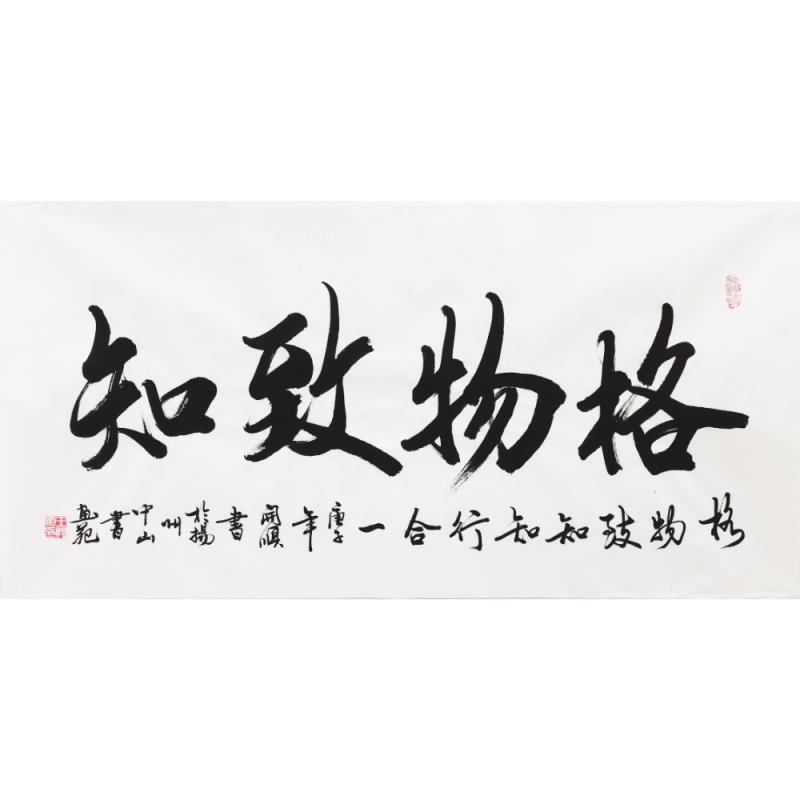 格物致知
格物致知知行合一庚子年開順書於揚州中山書画苑